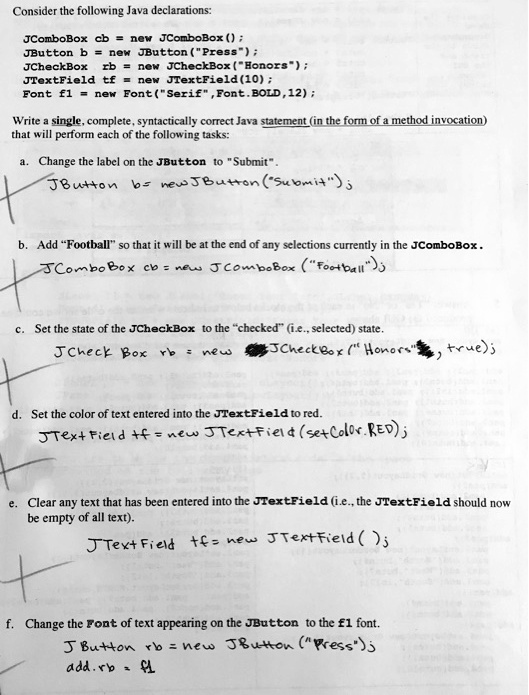 Consider the following Java declarations:
JComboBox cb = new JComboBox();
JButton b = new JButton("Press");
JCheckBox rb = new JCheckBox("Honors");
JTextField tf = new JTextField(10);
Font f1 = new Font("Serif",Font.BOLD,12);
Write a single, complete, syntactically correct Java statement (in the form of a method invocation)
that will perform each of the following tasks:
a. Change the label on the JButton to "Submit".
JButton b= new JButton("Submit");
b. Add "Football" so that it will be at the end of any selections currently in the JComboBox.
JComboBox cb = new JComboBox ("Football");
c. Set the state of the JCheckBox to the "checked" (i.e., selected) state.
JCheck Box rb = new JCheckBox ("Honors", true);
d. Set the color of text entered into the JTextField to red.
JTextField tf = new JTextField (setColor.RED);
e. Clear any text that has been entered into the JTextField (i.e., the JTextField should now
be empty of all text).
JTextField tf= new JTextField( );
f. Change the Font of text appearing on the JButton to the f1 font.
JButton rb = new JButton ("Press");
add.rb = f1